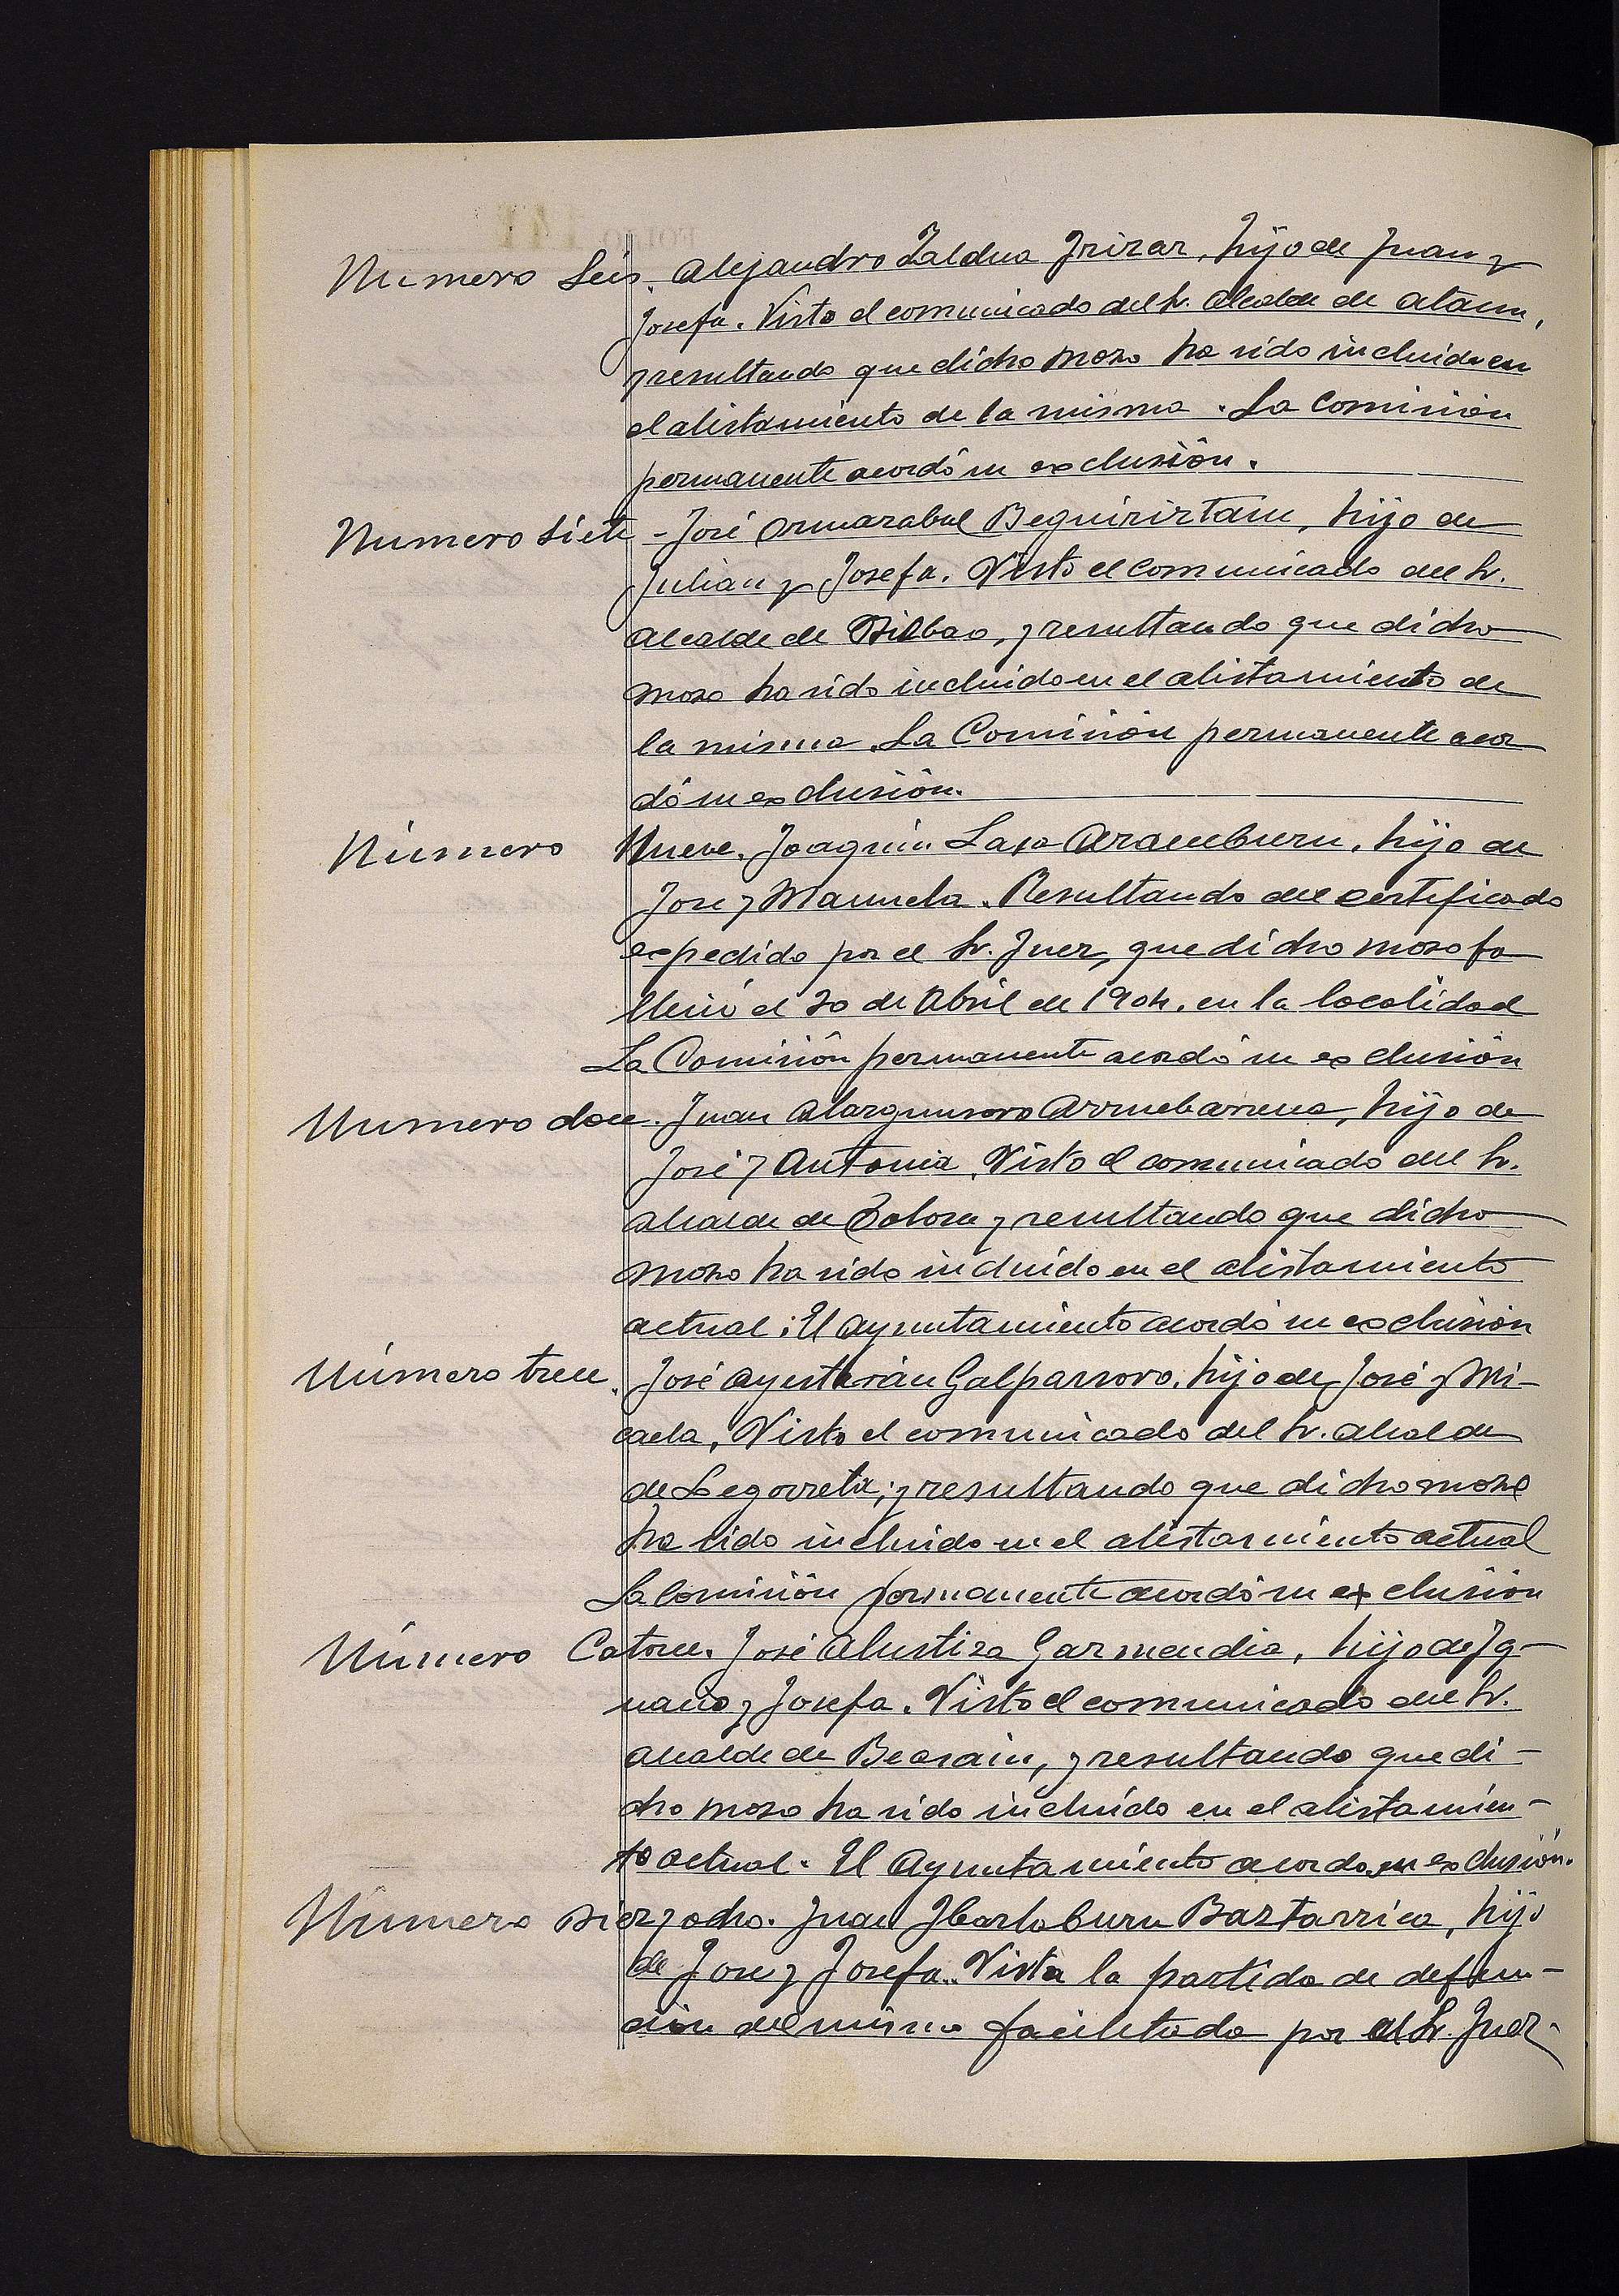 Numero Seis. Alejandro Zaldua Irizar, hijo de Juan y
Josefa. Visto el comunicado del Sr. Alcalde de Ataun,
y resultando que dicho mozo ha sido incluido en
el alistamiento de la misma. La Comisión
permanente acordó su exclusión.
Numero Siete - José Ormazabal Beguiristain, hijo de
Julian y Josefa. Visto el comunicado del Sr.
Alcalde de Bilbao, y resultando que dicho
mozo ha sido incluido en el alistamiento de
la misma. La Comisión permanente acor
dó su exclusión.
Número Nueve. Joaquin Lasa Aramburu, hijo de
Jose y Manuela. Resultando del certificado
expedido por el Sr. Juez, que dicho mozo fa
lleció el 20 de Abril de 1904, en la localidad
La Comisión permanente acordó su exclusión
Numero doce. Juan Alargunsoro Arruebarrena, hijo de
José y Antonia. Visto el comunicado del Sr.
Alcalde de Tolosa y resultando que dicho
mozo ha sido incluido en el alistamiento
actual; El Ayuntamiento acordó su exclusión
Número trece. José Ayesterán Galparsoro, hijo de José y Mi-
caela, Visto el comunicado del Sr. Alcalde
de Legorreta; y resultando que dicho mozo
ha sido incluido en el alistamiento actual
La Comisión permanente acordó su exclusión
Número Catorce. José Alustiza Garmendia, hijo de Ig-
nacio y Josefa. Visto el comunicado del Sr.
Alcalde de Beasain, y resultando que di-
cho mozo ha sido incluído en el alistamien-
to actual. El Ayuntamiento acordó su exclusión.
Número Diez y ocho. Juan Ibarlaburu Baztarrica, hijo
de Jose y Josefa. Vista la partida de defun-
ción del mismo facilitada por el Sr. Juez